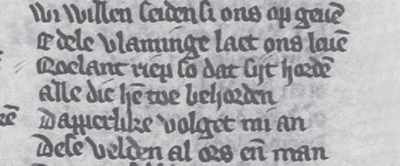 Wi willen seiden si ons op geuē
Edele vlaminge laet ons leuē
Roelant riep so dat sijt hordē
alle die hē toe behorden
Dapperlike volget mi an
Dese velden al ors eñ man